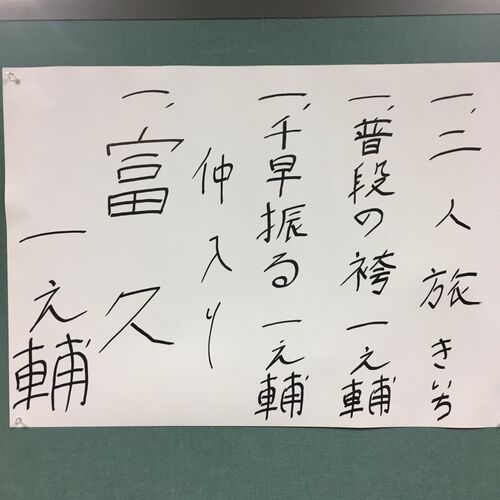 一、二人旅 きいち
一、普段の袴 一之輔
一、千早振る 一之輔
仲入り
一、富久
一之輔